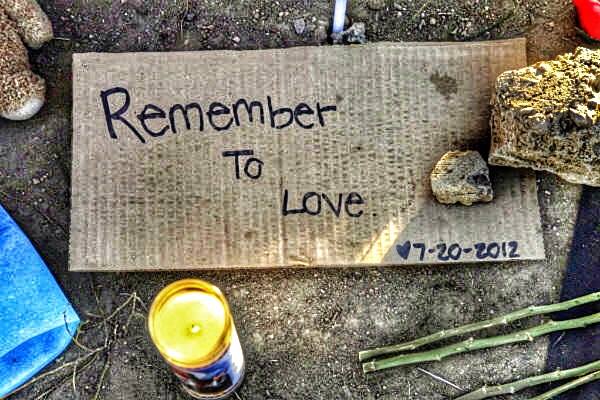 Remember
To
Love
♥7-20-2012